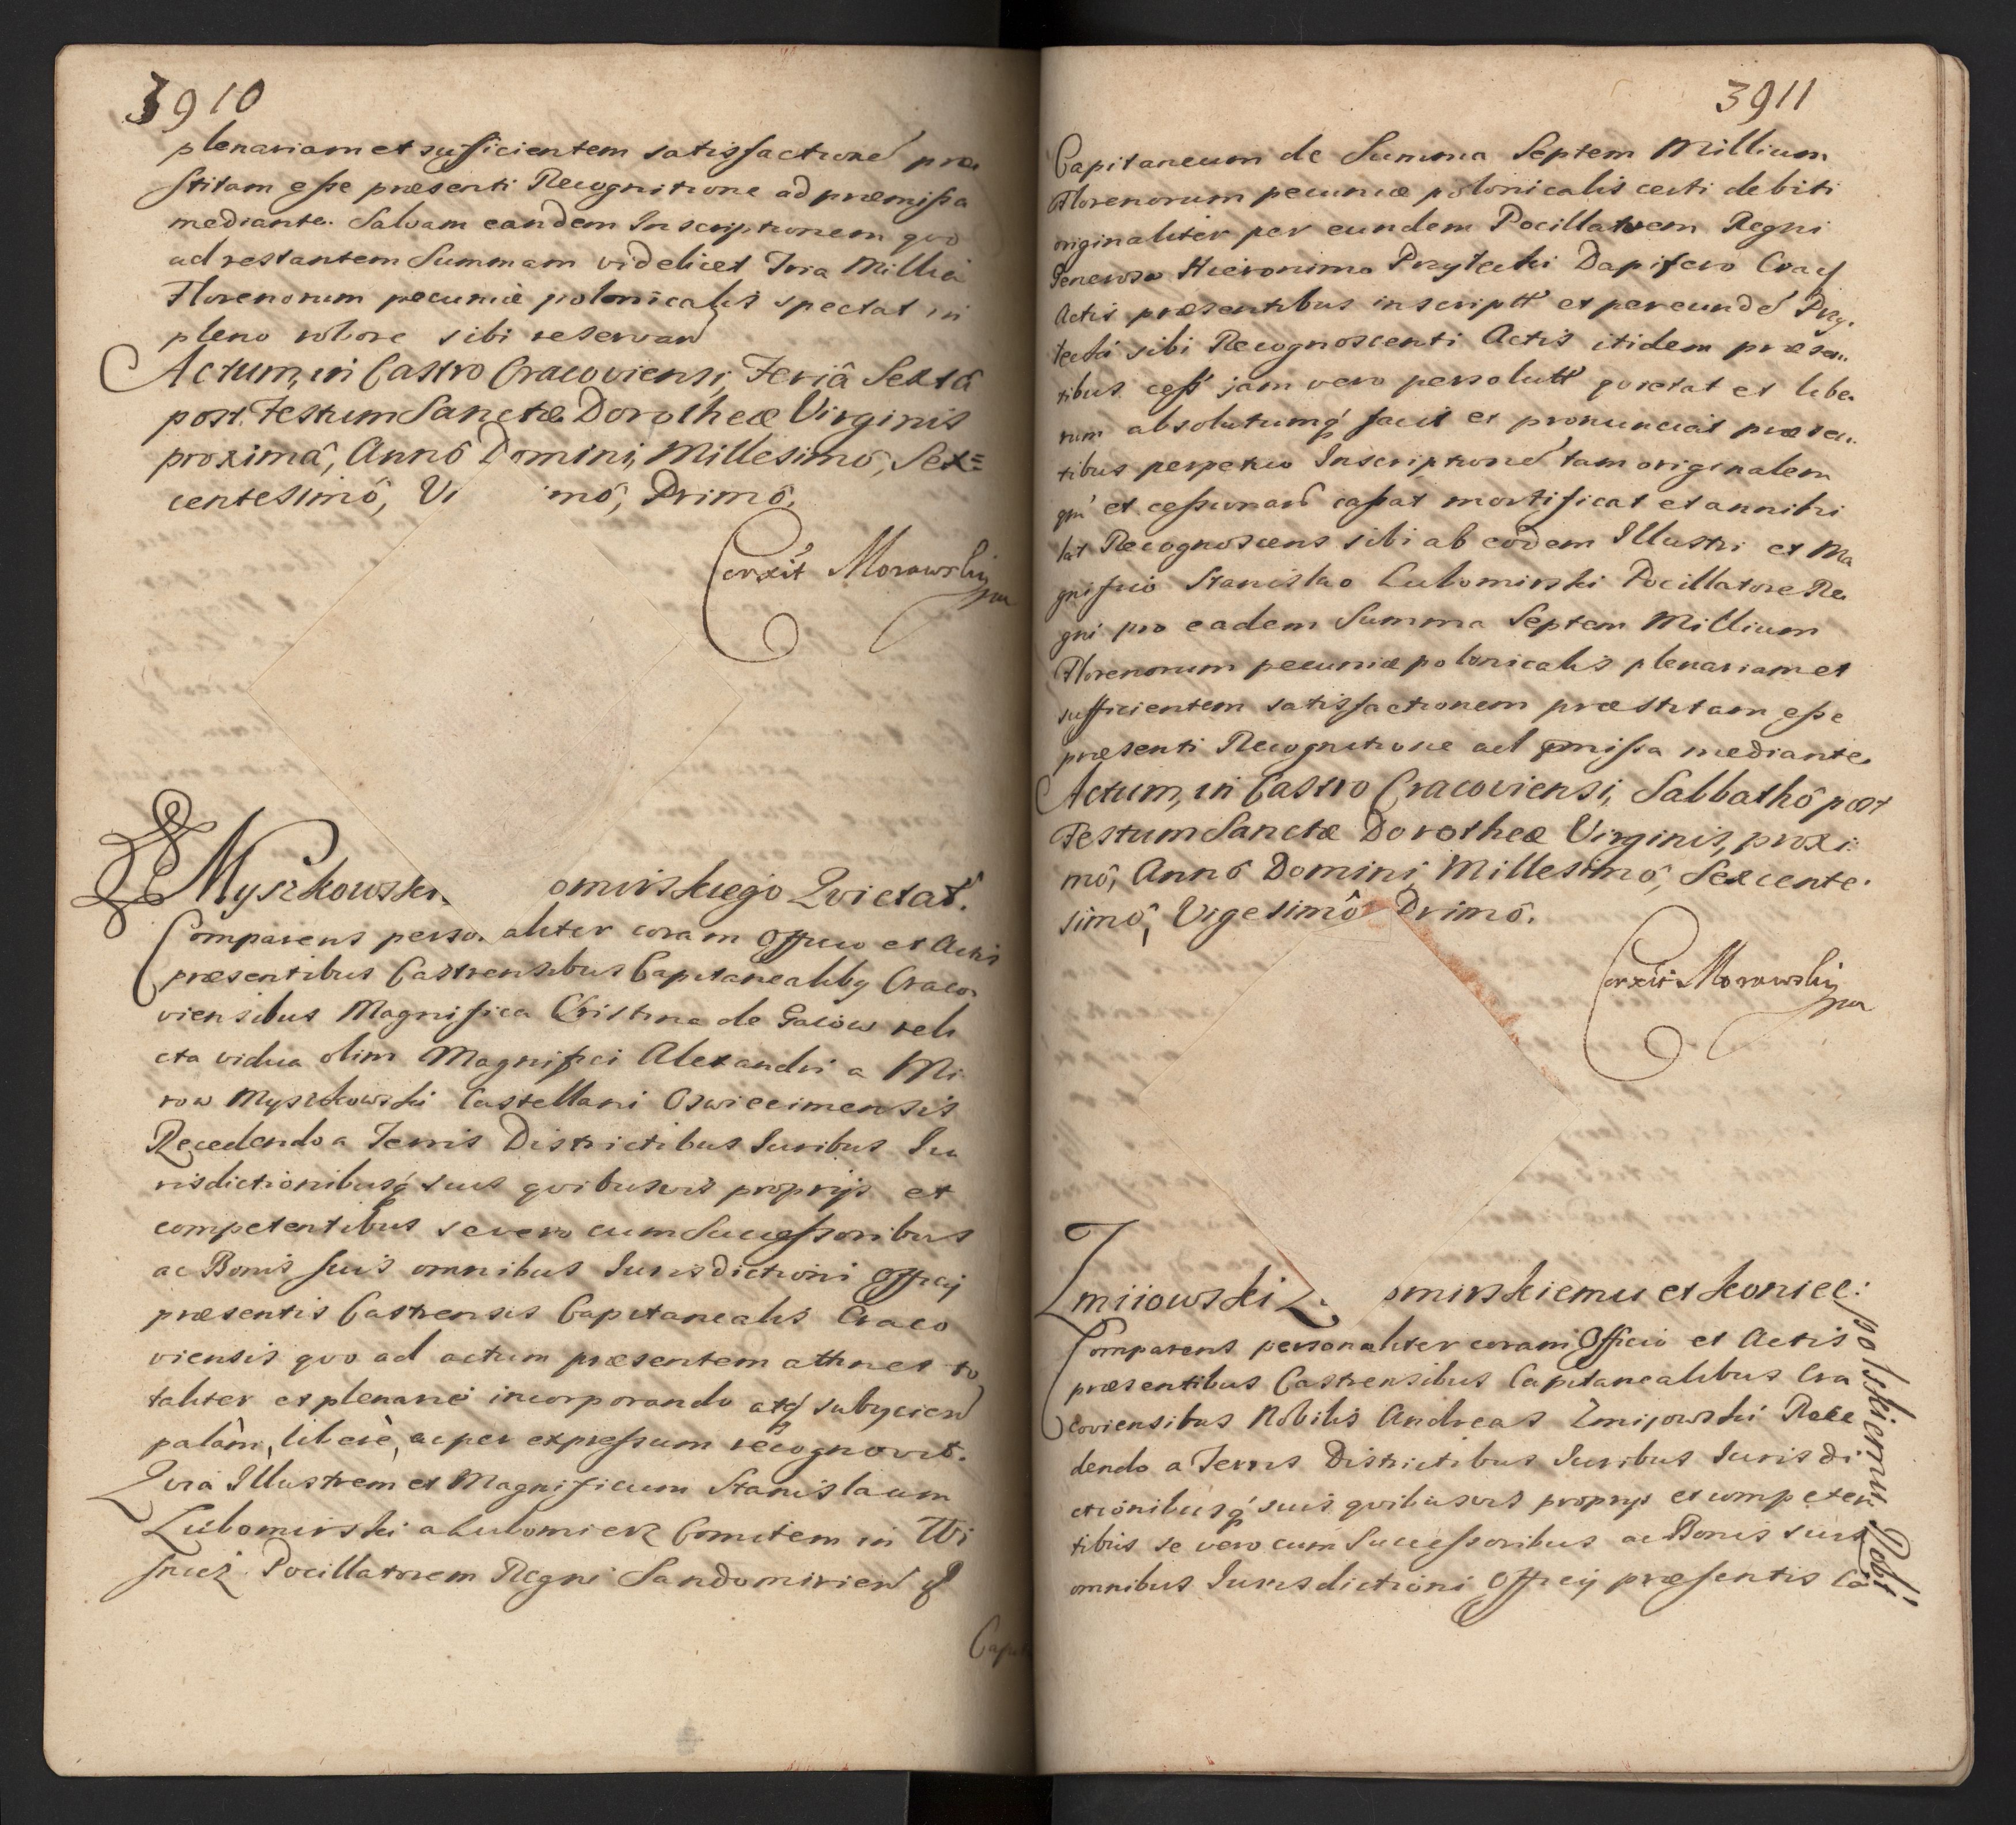 3910
plenariam et sufficientem satisfactioné præ
stitam esse præsenti Recognitione ad præmissa
mediante. Salvam eandem Inscriptionem quo
ad restantem Summam videlicet Tria Millia
Florenorum pecuniæ polonicalis spectat in
pleno robore sibi reservan
Actum, in Castro Cracoviensi, Feriâ Sextâ
post Festum Sanctæ Dorotheæ Virginis
proximâ, Annô Domini, Millesimô, Sex=
centesimô, Vi mô, Primô.
Corxit Morawski
mp
Myszkowska omirskiego Qvietat.
Comparens perso aliter coram Officio et Actis
præsentibus Castrensibus Capitanealibq Craco
viensibus Magnifica Cristina de Gaiow reli
cta vidua olim Magnifici Alexandri a Mi
row Myszkowski Castellani Oswiecimensis
Recedendo a Terris Districtibus Iuribus Iu
risdictionibusq́ suis qvibusvis proprijs et
competentibus se vero cum Successoribus
ac Bonis suis omnibus Iurisdictioni Officij
præsentis Castrensis Capitanealis Craco
viensis qvo ad actum præsentem attinet to
taliter et plenarie incorporando atq́ subijcien
palàm, liberè, ac per expressum recognovit.
Qvia Illustrem et Magnificum Stanislaum
Lubomirski a Lubomierz Comitem in Wi
snicz Pocillatorem Regni Sandomirien &
Capita
3911
Capitaneum de Summa Septem Millium
Florenorum pecuniæ polonicalis certi debiti
originaliter per eundem Pocillatorem Regni
Generoso Hieronimo Przylecki Dapifero Crac
Actis præsentibus inscriptt et per eundé Przy.
lecki sibi Recognoscenti Actis itidem præsen
tibus cess jam vero persolutt qvietat et libe
rum absolutumq́ facit et pronunciat præsen
tibus perpetuo Inscriptioné tam originalem
qm̃ et cessionari cassat mortificat et annihi
lat Recognoscens sibi ab eodem Illustri et Ma
gnifico Stanislao Lubomirski Pocillatore Re
gni pro eadem Summa Septem Millium
Florenorum pecuniæ polonicalis plenariam et
sufficientem satisfactionem præstitam esse
præsenti Recognitione ad pmissa mediante
Actum, in Castro Cracoviensi, Sabbathô post
Festum Sanctæ Dorotheæ Virginis, proxi:
mô, Annô Domini, Millesimô, Sexcente:
simô, Vigesimô Primô.
Corxit Morawski
mp
Zmiiowski L omirskiemu et koniec:
polskiemu Robt.
Comparens personaliter coram Officio et Actis
præsentibus Castrensibus Capitanealibus Cra
coviensibus Nobilis Andreas Zmijowski Rece
dendo a Terris Districtibus Iuribus Iurisdi
ctionibusq́ suis qvibusvis proprijs et competen
tibus se vero cum Successoribus ac Bonis suis
omnibus Iurisdictioni Officij præsentis Ca